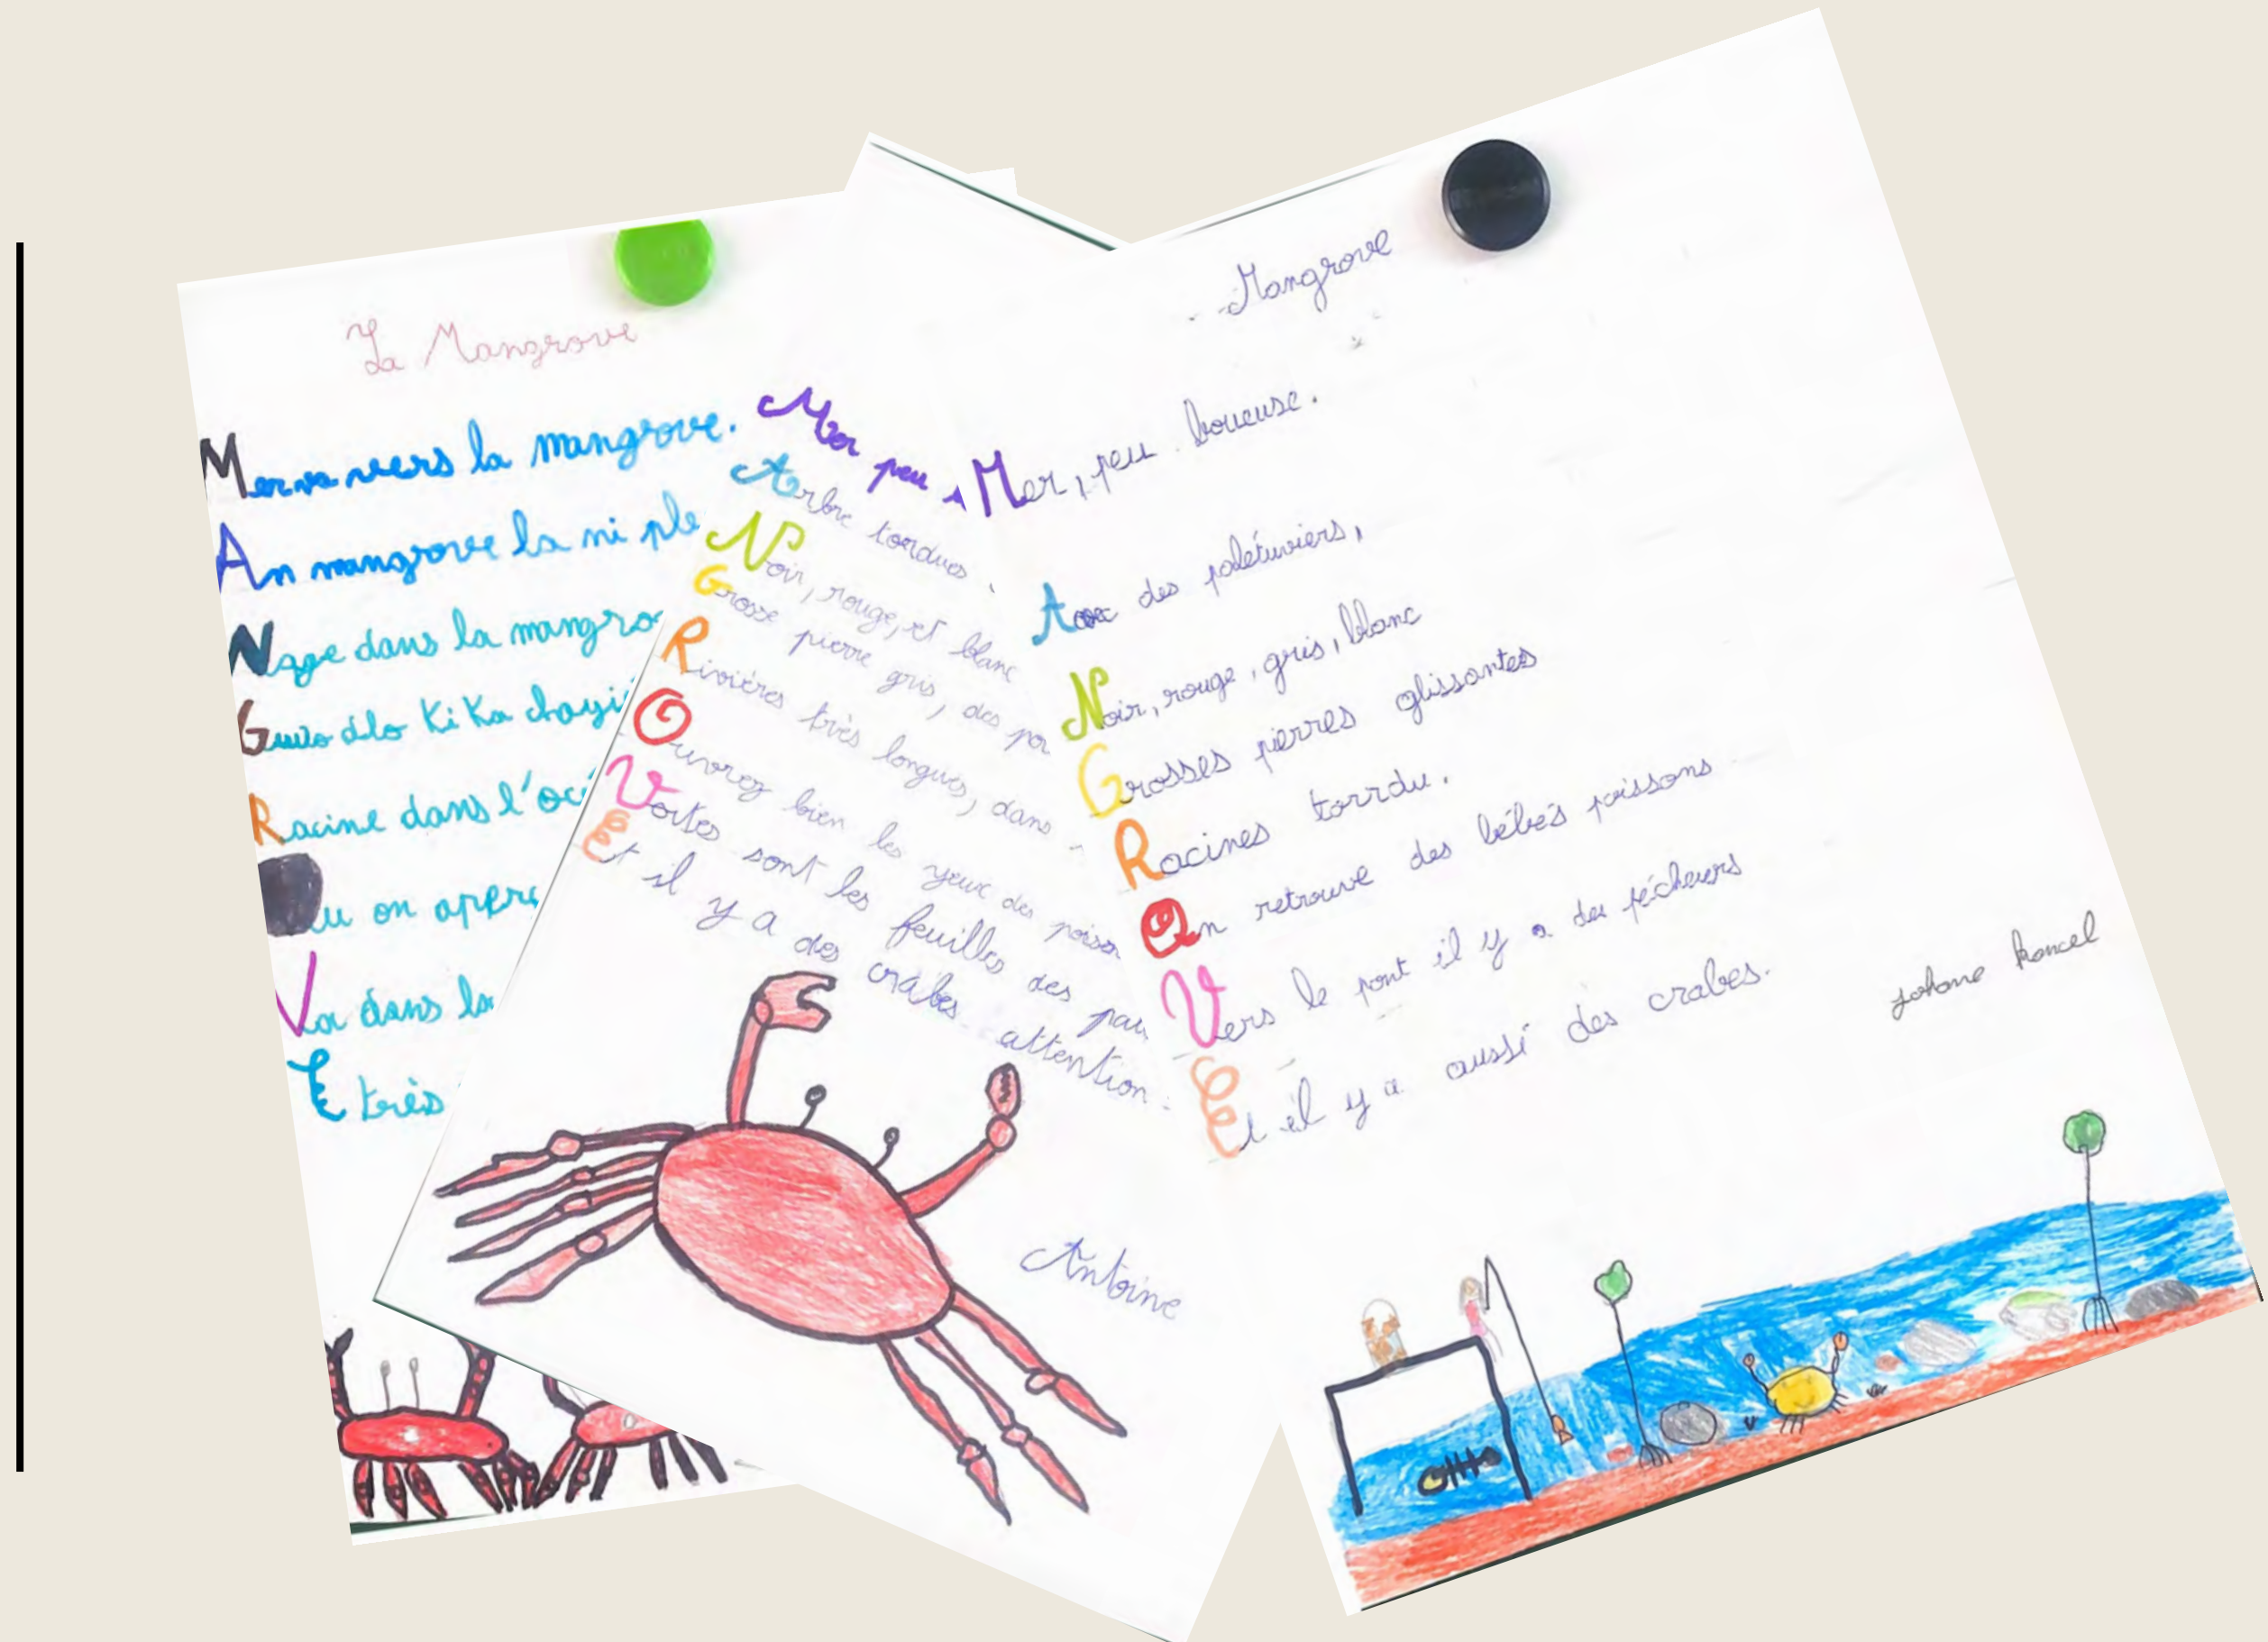 La Mangrove
Merva vers la mangrove.
An mangrove la ni ple
Nage dans la mangro
dlo ki ka chayi
Racine dans l'oc
u on aperç
Va dans la
E très
Mer peu
Arbre tordues.
Noir, rouge, et blanc
Grosse pierre gris, des pa
Rivières très longues, dans
Ouvrez bien les yeux des poisso
Vertes sont les feuilles des pa
Et il y a des crabes attention.
Antoine
Mangrove
Mer, peu boueuse.
Avec des palétuviers,
Noir, rouge, gris, blanc
Grosses pierres glissantes
Racines torrdu.
On retrouve des bébés poissons
Vers le pont il y a des pécheurs
Et il y a aussi des crabes.